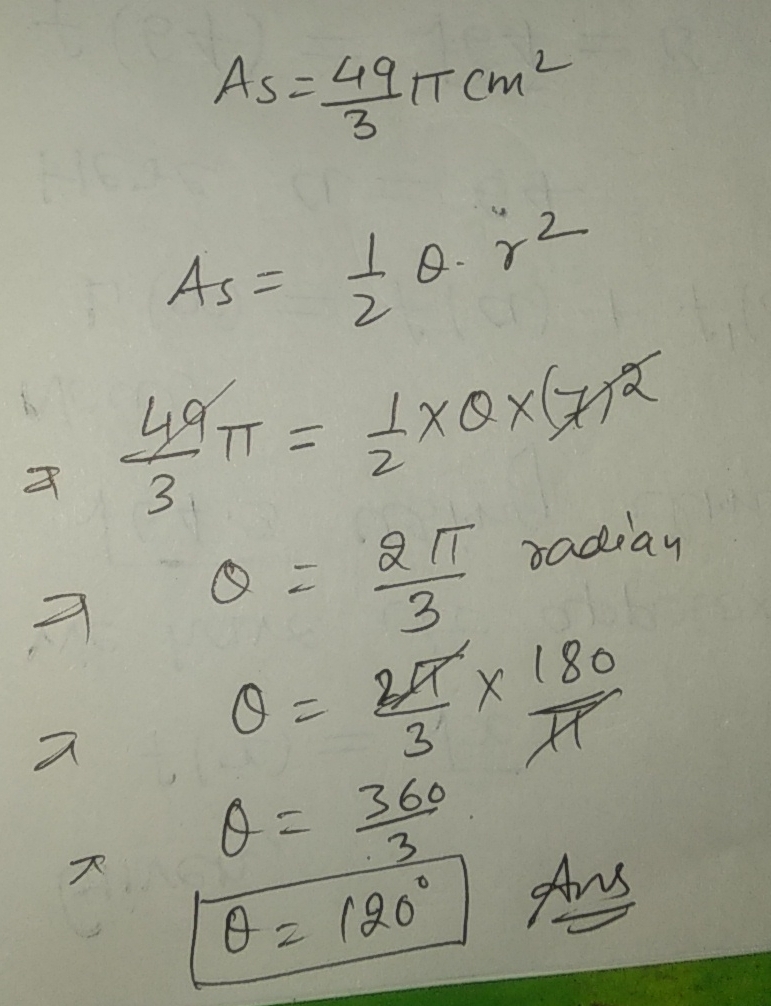 As = 49/3 π cm²
As = 1/2 θ. r²
⇒ 49/3 π = 1/2 × θ × (7)²
⇒ θ = 2π/3 radian
⇒ θ = 2π/3 × 180/π
⇒ θ = 360/3
θ = 120° Ans